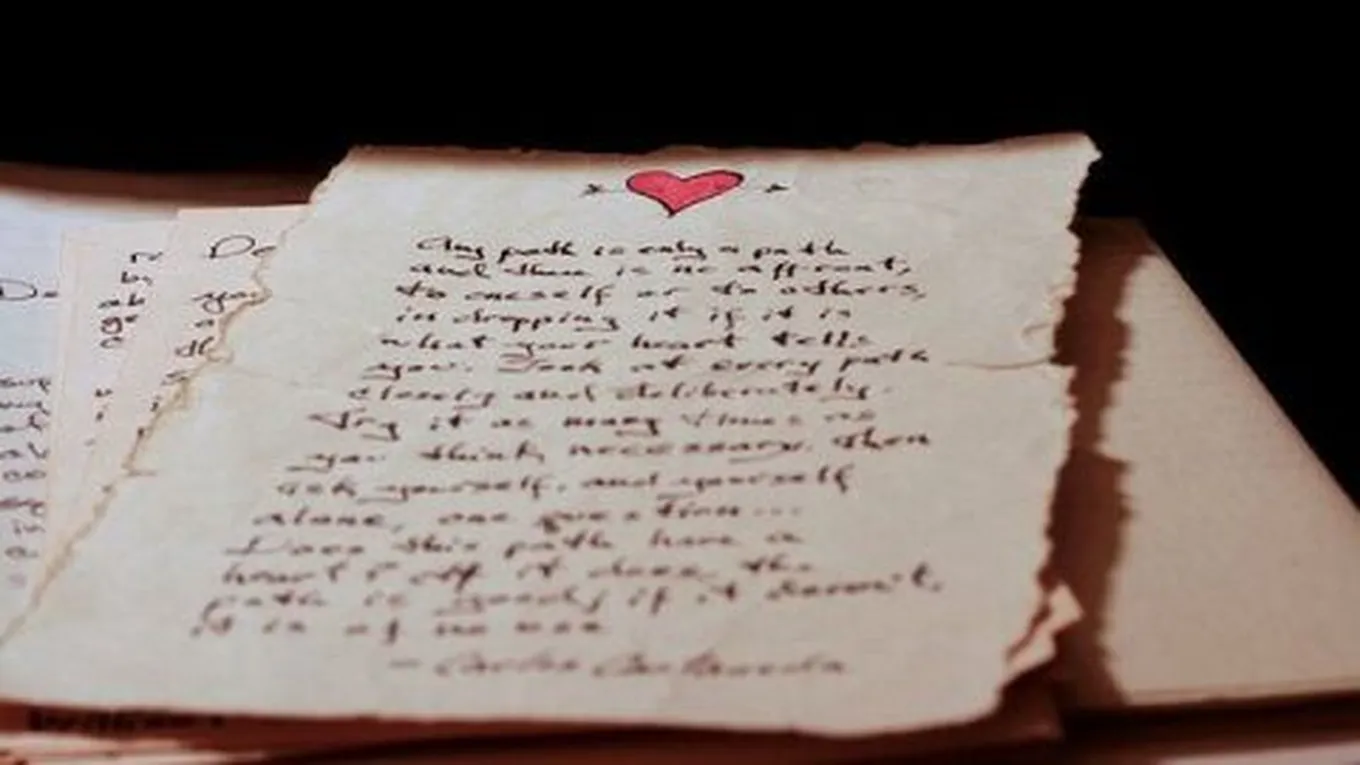 Any path is only a path
and there is no affront,
to oneself or to others,
in dropping it if it is
what your heart tells
you. Look at every path
closely and deliberately.
Try it as many times as
you think necessary. Then
ask yourself, and yourself
alone, one question...
Does this path have a
heart? If it does, the
path is good; if it doesn't,
it is of no use
- Carlos Castaneda
De
you
De